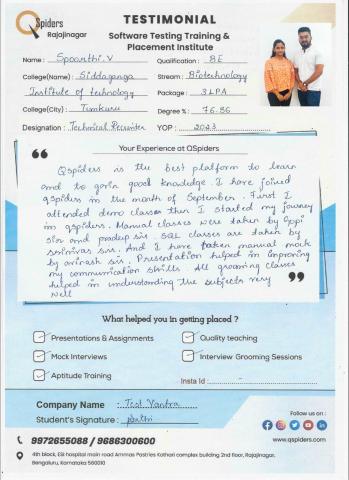 QSpiders
Rajajinagar
TESTIMONIAL
Software Testing Training &
Placement Institute
Name : Spoorthi.V
Qualification : BE
College(Name) : Siddaganga
Stream : Biotechnology
Institute of technology
Package : 3LPA
College(City) : Tumkuru
Degree % : 76.86
Designation : Technical Recruiter
YOP : 2023
Your Experience at QSpiders
QSpiders is the best platform to learn
and to gain good knowledge. I have joined
qspiders in the month of September. First I
attended demo classes then I started my journey
in qspiders. Manual classes were taken by Gopi
sir and pradeep sir. SQL classes are taken by
srinivas sir. And I have taken manual mock
by avinash sir. Presentation helped in improving
my communication skills. All grooming classes
helped in understanding the subjects very
well
What helped you in getting placed ?
Presentations & Assignments
Quality teaching
Mock Interviews
Interview Grooming Sessions
Aptitude Training
Insta Id : -
Company Name : Test Yantra
Student's Signature :
Follow us on :
9972655088 / 9686300600
www.qspiders.com
4th block, ESI hospital main road Ammas Pastries Kothari complex building 2nd floor, Rajajinagar,
Bengaluru, Karnataka 560010